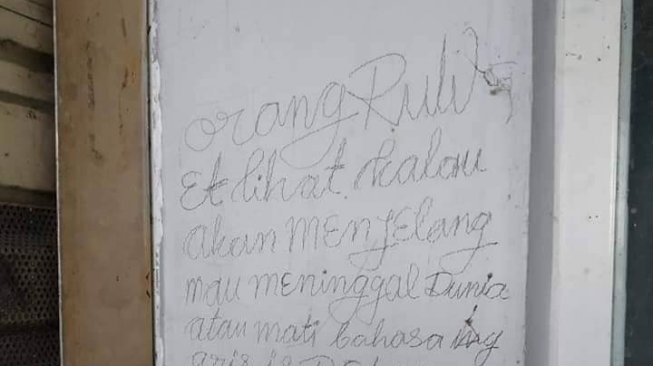 orang Ruli
Et lihat kalau
akan MENJElang
mau MENiNggal Dunia
atau mati bahasa ing
gris is